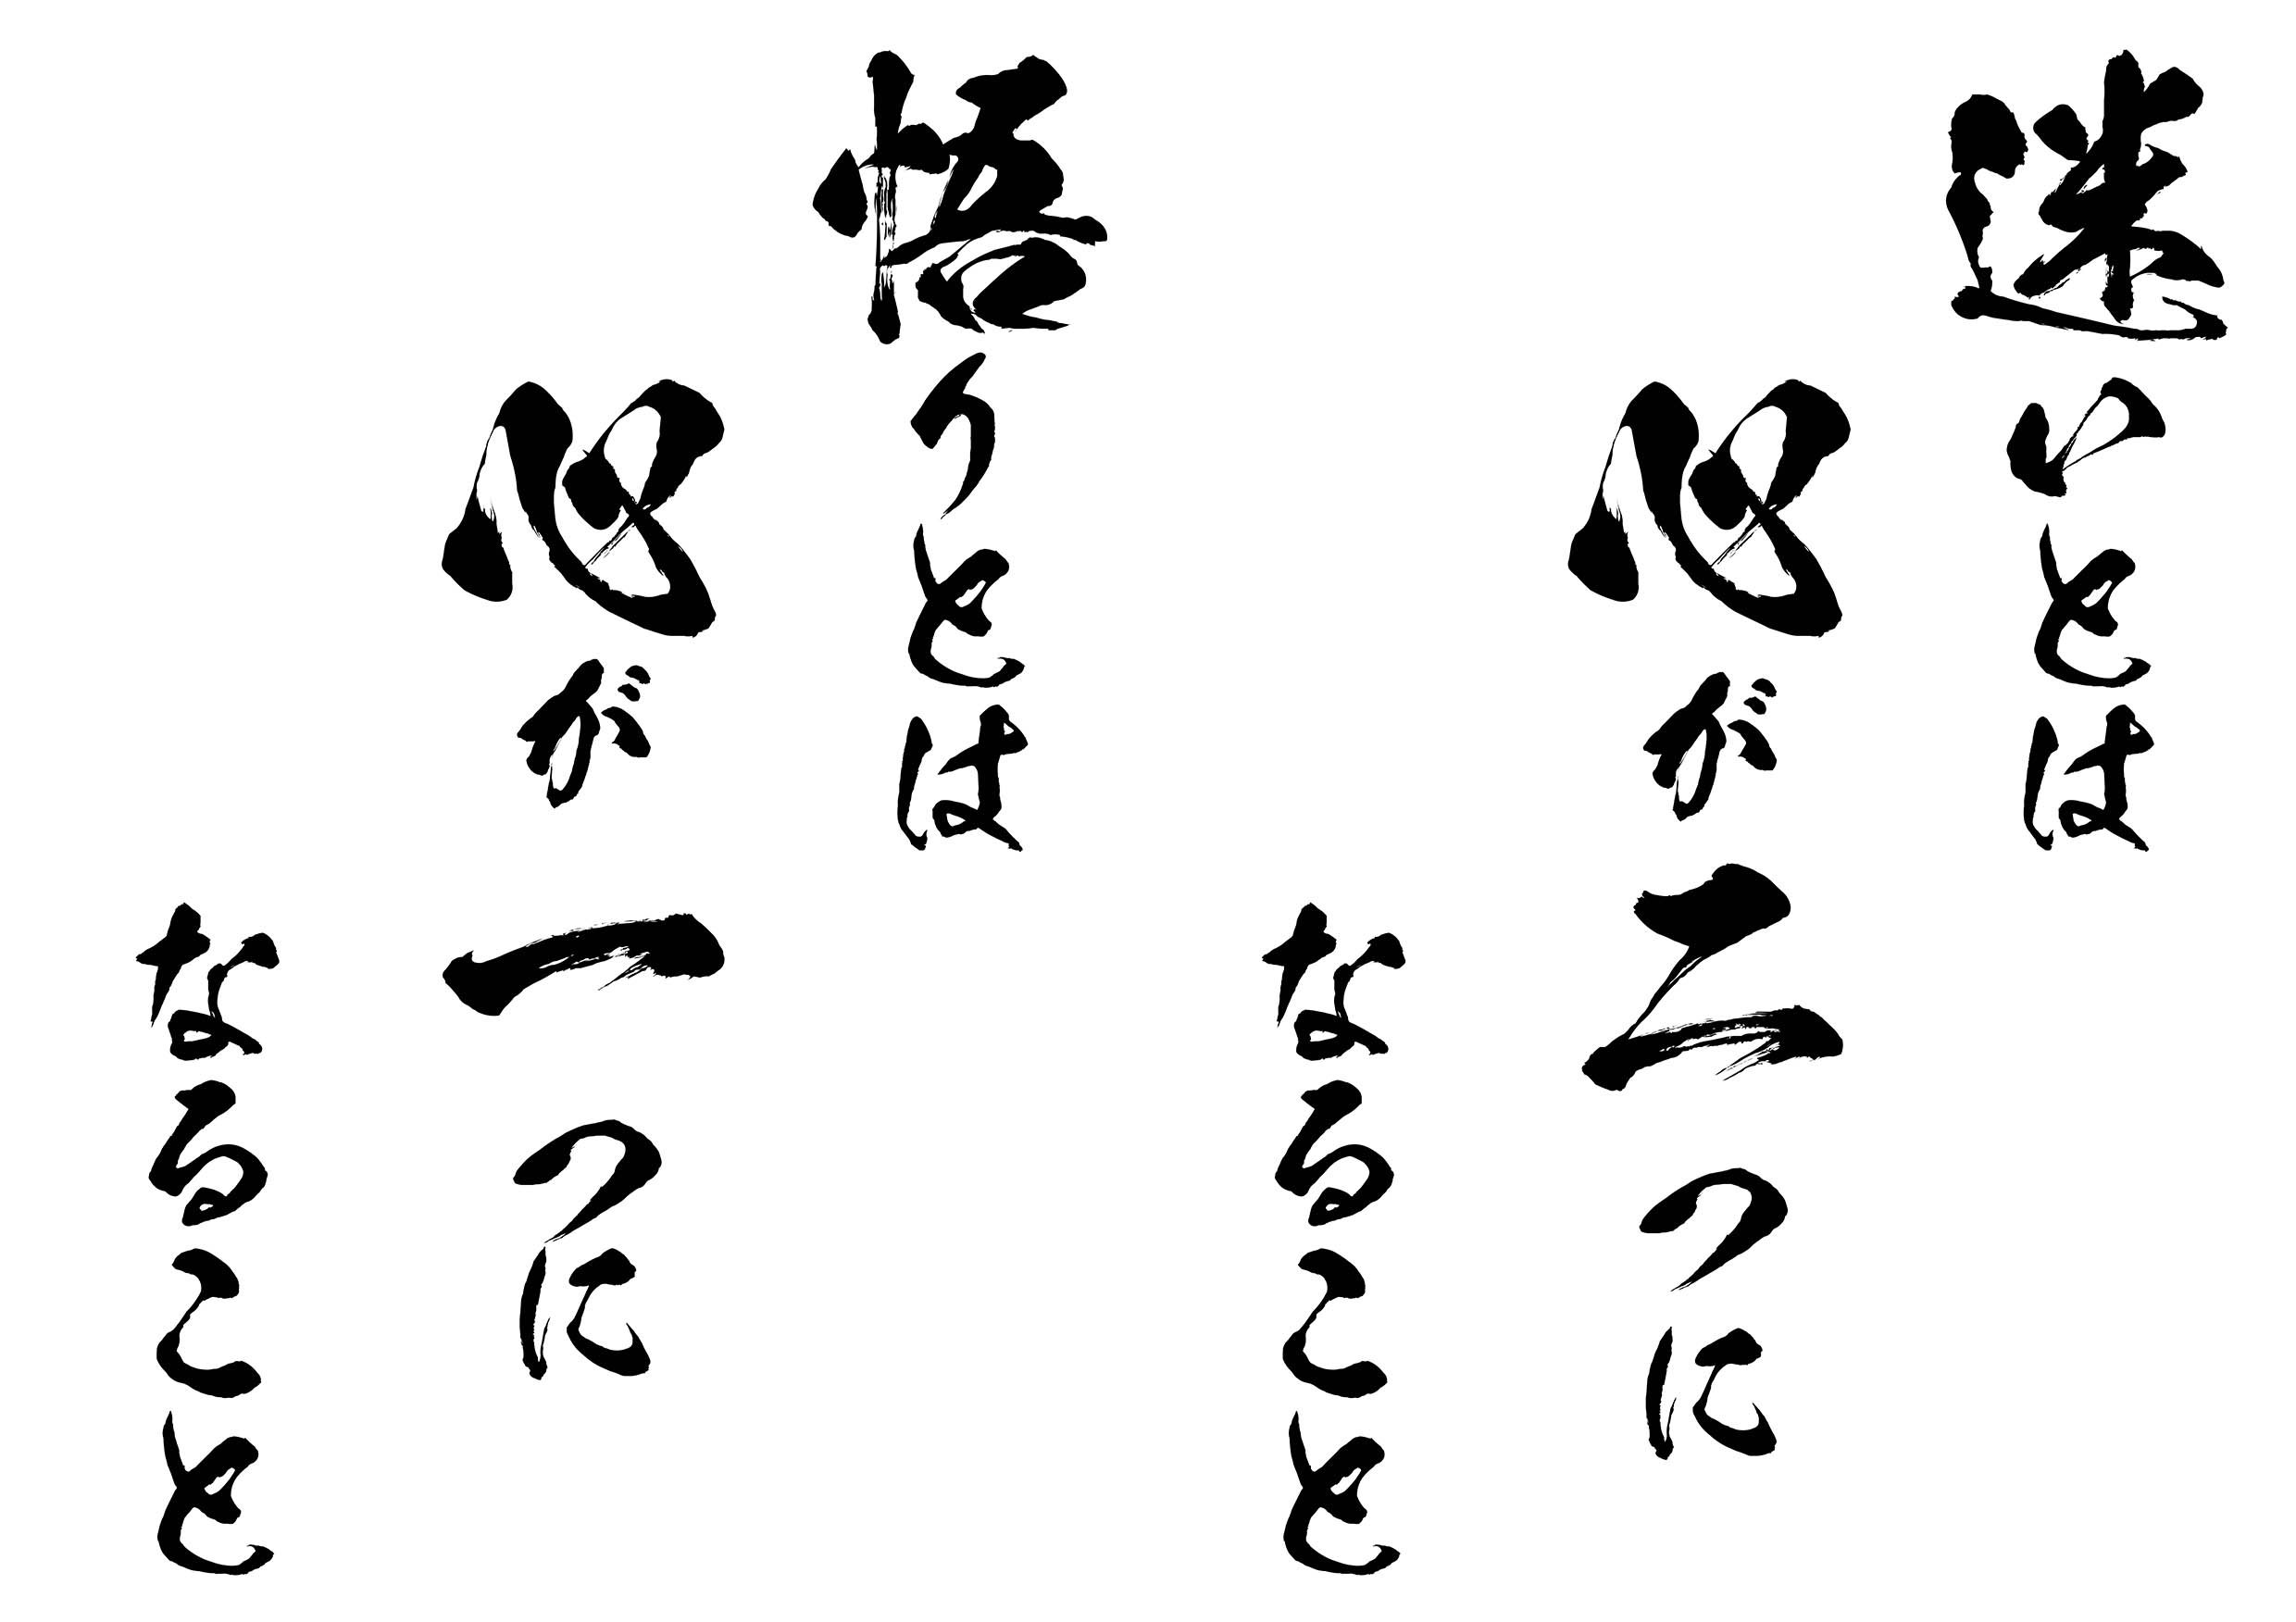 迷いとは
心が二つに
なること
悟りとは
心が一つに
なること